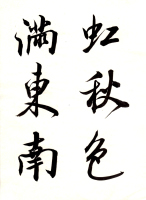 虹秋色
滿東南